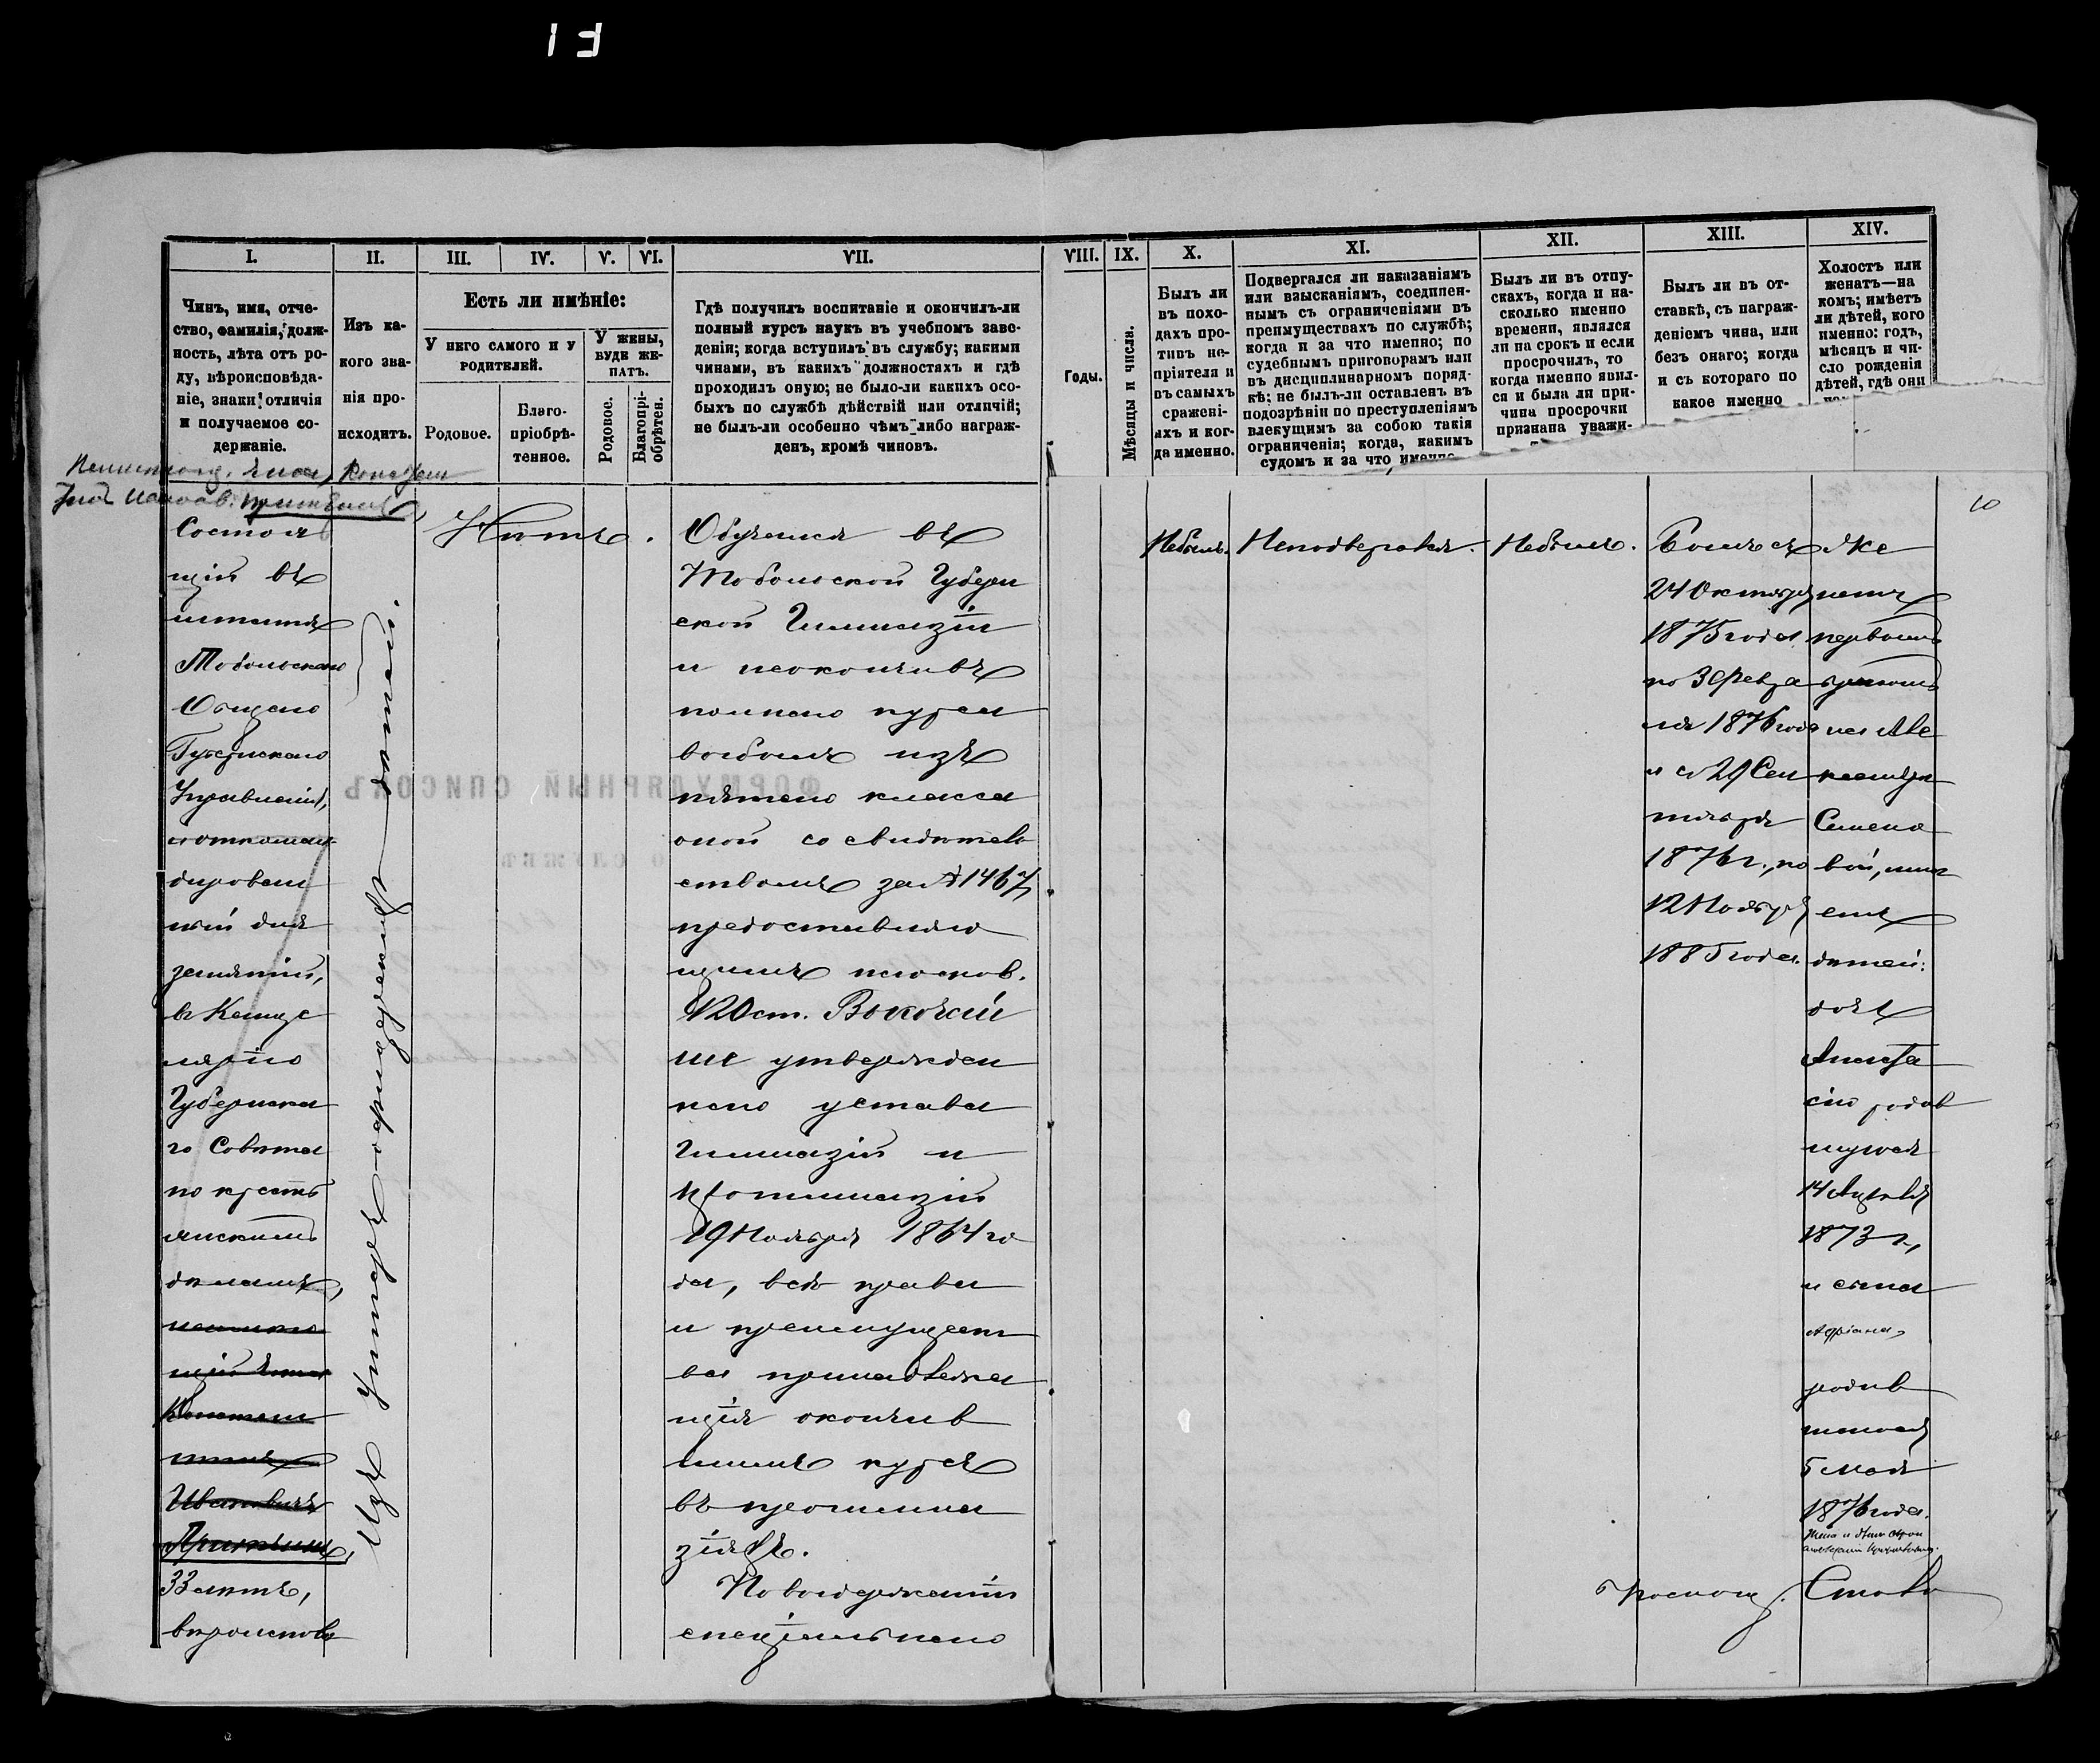 I.
Чинъ, имя, отче-
ство, фамилія, долж-
ность, лѣта отъ ро-
ду, вѣроисповѣда-
ніе, знаки отличія
и получаемое со-
держаніе.
II.
Изъ ка-
кого зва-
нія про-
исходитъ.
III. IV. V. VI.
Есть ли имѣніе:
У него самого и у
родителей.
У жены,
буде же-
натъ.
Родовое.
Благо-
пріобрѣ-
тенное.
Родовое.
Благопрі-
обрѣтен.
VII.
Гдѣ получилъ воспитаніе и окончилъ-ли
полный курсъ наукъ въ учебномъ заве-
деніи; когда вступилъ въ службу; какими
чинами, въ какихъ должностяхъ и гдѣ
проходилъ оную; не было-ли какихъ осо-
быхъ по службѣ дѣйствій или отличій;
не былъ-ли особенно чѣмъ либо награж-
денъ, кромѣ чиновъ.
VIII.
Годы.
IX.
Мѣсяцы и числа.
X.
Былъ ли
въ похо-
дахъ про-
тивъ не-
пріятеля и
въ самыхъ
сражені-
яхъ и ког-
да именно.
XI.
Подвергался ли наказаніямъ
или взысканіямъ, соединен-
нымъ съ ограниченіями въ
преимуществахъ по службѣ;
когда и за что именно; по
судебнымъ приговорамъ или
въ дисциплинарномъ поряд-
кѣ; не былъ-ли оставленъ въ
подозрѣніи по преступленіямъ
влекущимъ за собою такія
ограниченія; когда, какимъ
судомъ и за что именно
XII.
Былъ ли въ отпу-
скахъ, когда и на-
сколько именно
времени, являлся
ли на срокъ и если
просрочилъ, то
когда именно явил-
ся и была ли при-
чина просрочки
признана уважи-
XIII.
Былъ ли въ от-
ставкѣ, съ награж-
деніемъ чина, или
безъ онаго; когда
и съ котораго по
какое именно
XIV.
Холостъ или
женатъ—на
комъ; имѣетъ
ли дѣтей, кого
именно: годъ,
мѣсяцъ и чи-
сло рожденія
дѣтей, гдѣ они
10
Состоя
щій въ
штатѣ
Тобольскаго
Общаго
Губернскаго
Управленія,
и откоман-
дирован
ный для
занятій,
въ Канце
лярію
Губернска
го Совѣта
по кресть
янскимъ
дѣламъ,
неимѣю
щій чина
Констан
тинъ
Ивановичъ
33 лѣтъ,
вѣроисповѣ
Изъ Унтеръ-офицерскихъ дѣтей.
Нѣтъ.
Обучался въ
Тобольской Губерн
ской Гимназіи
и неокончивъ
полнаго курса
выбылъ изъ
пятаго класса
оной со свидѣтель
ствомъ за № 1467,
предоставляю
щимъ на основ.
120 ст. Высочай
ше утвержден
наго устава
Гимназій и
прогимназій
19 Ноября 1864 го
да, всѣ права
и преимущест
ва принадлежа
щія окончив
шимъ курсъ
въ прогимна
зіяхъ.
По выдержаніи
спеціальнаго
Небылъ.
Неподвергался.
Небылъ.
Былъ съ
24 Октября
1875 года
по 3 Февра
ля 1876 года
и съ 29 Сен
тября
1876 г., по
12 Ноября
1885 года.
Же
натъ
первымъ
бракомъ
на Але
ксандрѣ
Семено
вой, имѣ
етъ
дѣтей:
дочь
Анаста
сію родив
шуюся
14 Декабря
1873 г.,
и сына
Адріана,
родив
шагося
5 Мая
1876 года.